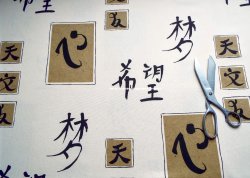 天
文
友
心
梦
希望
梦
天
心
天
文
友
希望